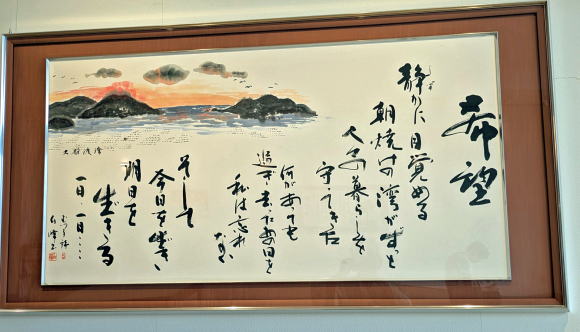 希望
静かに目覚める
朝焼けの湾がずっと
人々の暮らしを
守ってきた
何があっても
過ぎ去ったあの日を
私は忘れない
そして
今日を生き
明日を
生きる
一日・一日・・・・